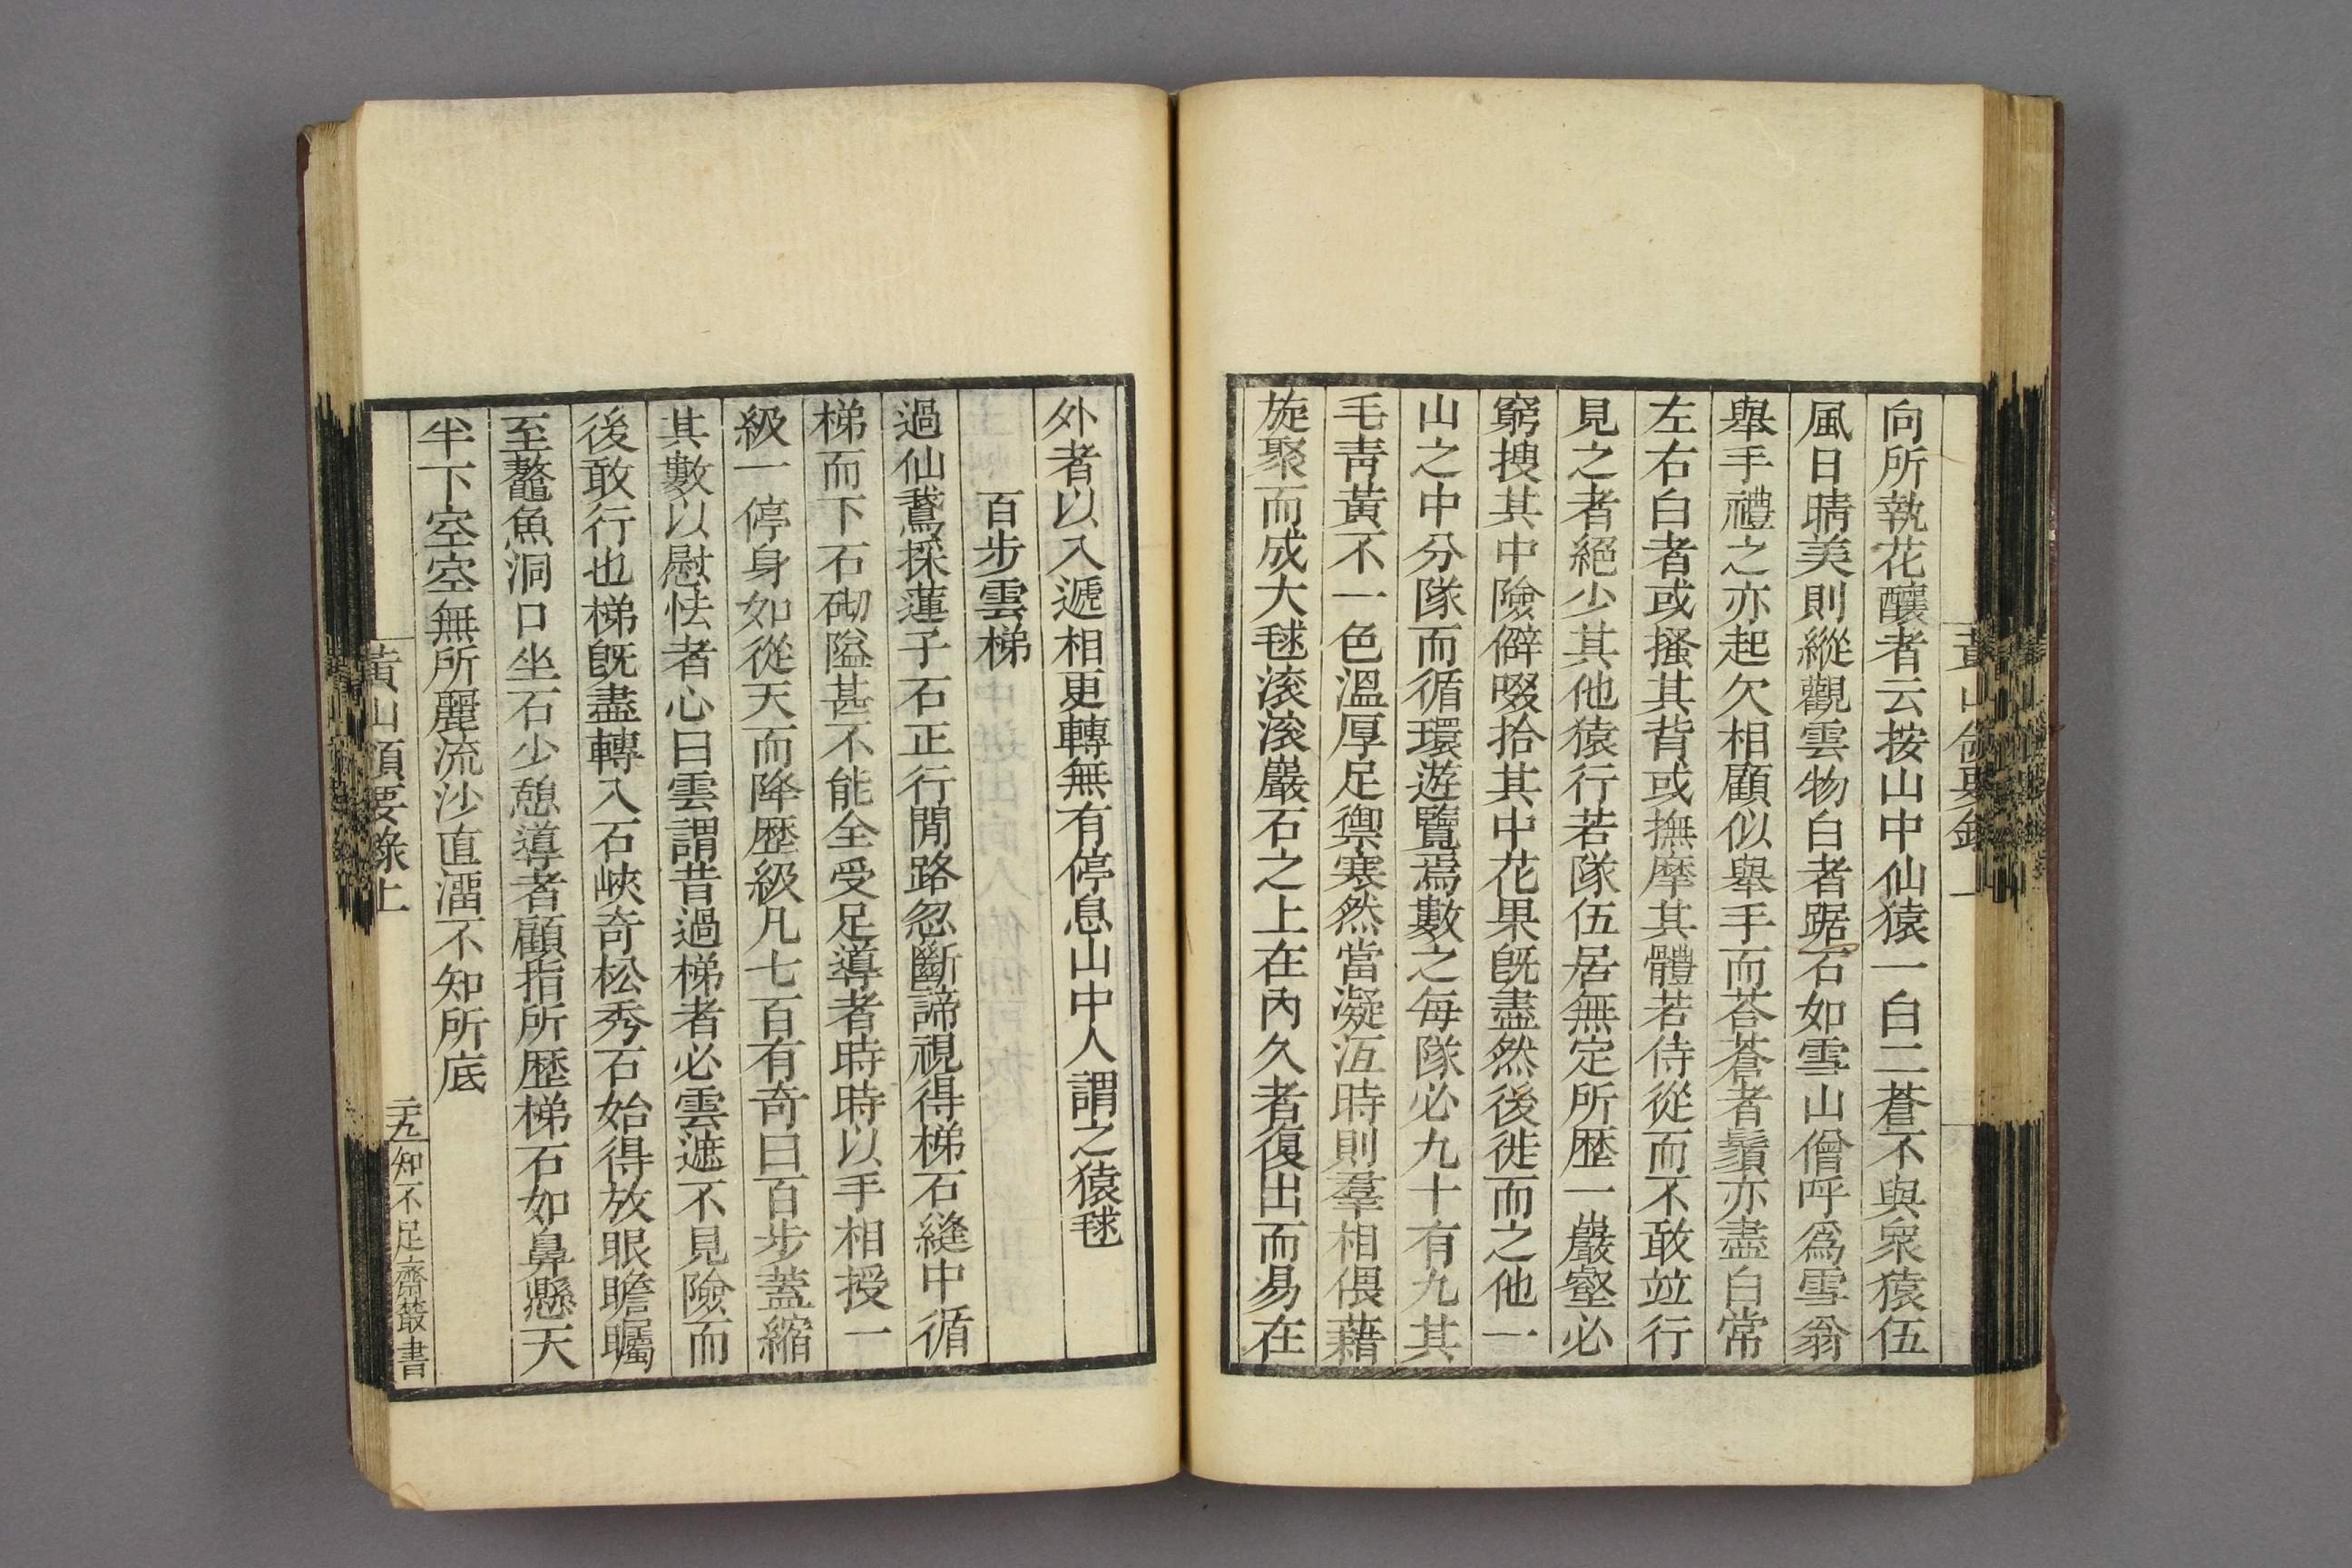 向所執花釀者云按山中仙猿一白二蒼不與衆猿伍
風日晴美則縱觀雲物白者踞石如雪山僧呼爲雪翁
舉手禮之亦起欠相顧似舉手而荅蒼者鬚亦盡白常
左右白者或搔其背或撫摩其體若侍從而不敢竝行
見之者絕少其他猿行若隊伍居無定所歷一巖壑必
窮搜其中險僻啜拾其中花果旣盡然後徙而之他一
山之中分隊而循環遊覽焉數之每隊必九十有九其
毛靑黃不一色溫厚足禦寒然當凝沍時則羣相偎藉
旋聚而成大毬滚滚巖石之上在內久者復出而易在
外者以入遞相更轉無有停息山中人謂之猿毬
百步雲梯
過仙鵞採蓮子石正行閒路忽斷諦視得梯石縫中循
梯而下石砌隘甚不能全受足導者時時以手相授一
級一停身如從天而降歷級凡七百有奇曰百步蓋縮
其數以慰怯者心曰雲謂昔過梯者必雲遮不見險而
後敢行也梯旣盡轉入石峽奇松秀石始得放眼瞻矚
至鼇魚洞口坐石少憩導者顧指所歷梯石如鼻懸天
半下空空無所麗流沙直溜不知所底
黃山領要錄上
二十九
知不足齋叢書